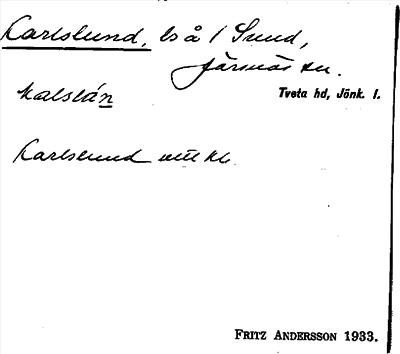 Karlslund, ls å 1 Sund,
Järsnäs sn.
kalslán Tveta hd, Jönk. l.
Karlslund
FRITZ ANDERSSON 1933.